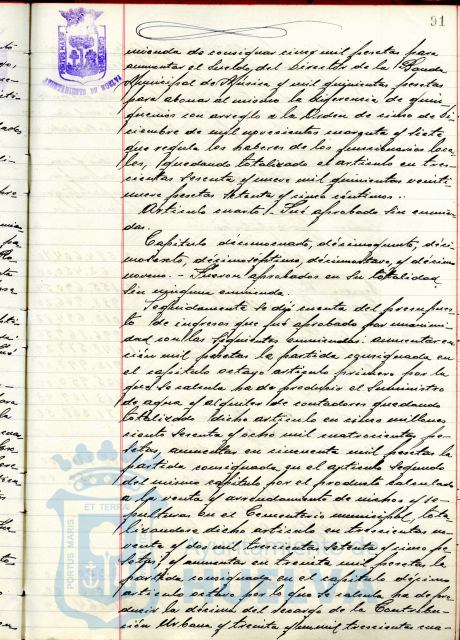 91
AYUNTAMIENTO DE HUELVA
mienda de consignar cinco mil pesetas para
aumentar el sueldo del Director de la Banda
Municipal de Música y mil quinientas pesetas
para abonar al mismo la diferencia de quin-
quenios con arreglo a la Orden de cinco de Di-
ciembre de mil novecientos cuarenta y siete
que regula los haberes de los funcionarios loca-
les, quedando totalizado el artículo en tres-
cientas sesenta y nueve mil quinientas veinti-
nueve pesetas setenta y cinco céntimos.-
Artículo cuarto/- Fué aprobado sin enmien-
das.
Capítulo décimocuarto, décimoquinto, déci-
mosexto, décimoséptimo, décimoctavo, y décimo
noveno.- Fueron aprobados en su totalidad
sin ninguna enmienda.
Seguidamente se dió cuenta del presupues-
to de ingresos que fué aprobado por unanimi-
dad con las siguientes enmiendas: aumentar en
cien mil pesetas la partida consignada en
el capítulo octavo artículo primero por lo
que se calcula ha de producir el suministro
de agua y alquiler de contadores quedando
totalizado dicho artículo en cinco millones
ciento sesenta y ocho mil cuatrocientas pe-
setas, aumentar en cincuenta mil pesetas la
partida consignada en el artículo segundo
del mismo capítulo por el producto calculado
a la venta y arrendamiento de nichos y se-
pulturas en el Cementerio municipal, tota-
lizandose dicho artículo en trescientas no-
venta y dos mil trescientas setenta y cinco pe-
setas, y aumentar en sesenta mil pesetas la
partida consignada en el capítulo décimo
artículo octavo por lo que se calcula ha de pro-
ducir la décima del recargo de la Contribu-
ción Urbana y treinta y un mil trescientas cua-
PORTUS MARIS ET TERRAE
Ayuntamiento de
HUELVA